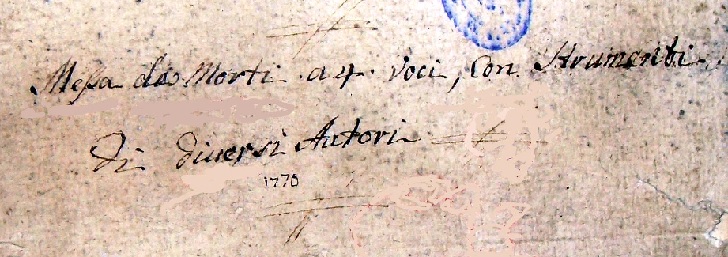 Messa da Morti a 4. voci, con Strumenti,
Di diversi Autori
1770